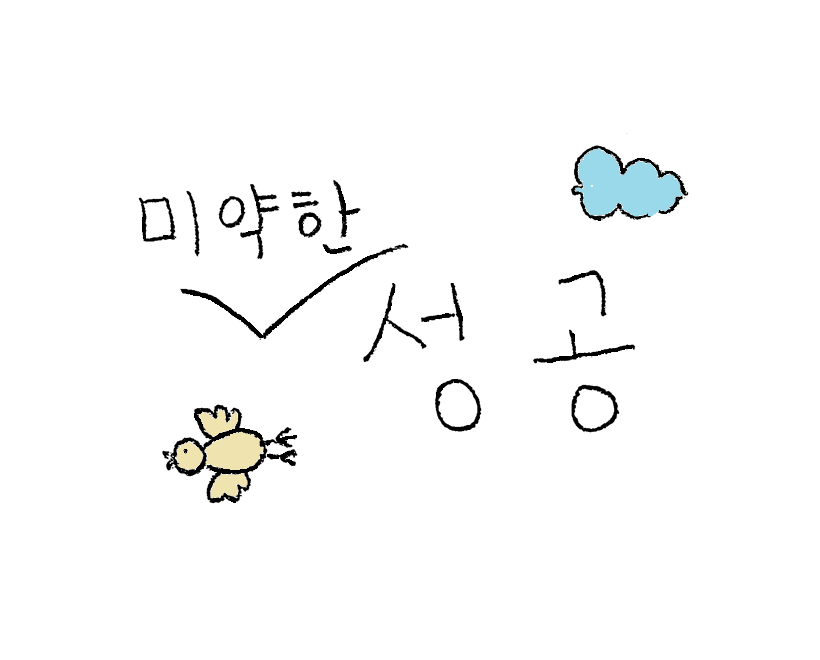 미약한
성공